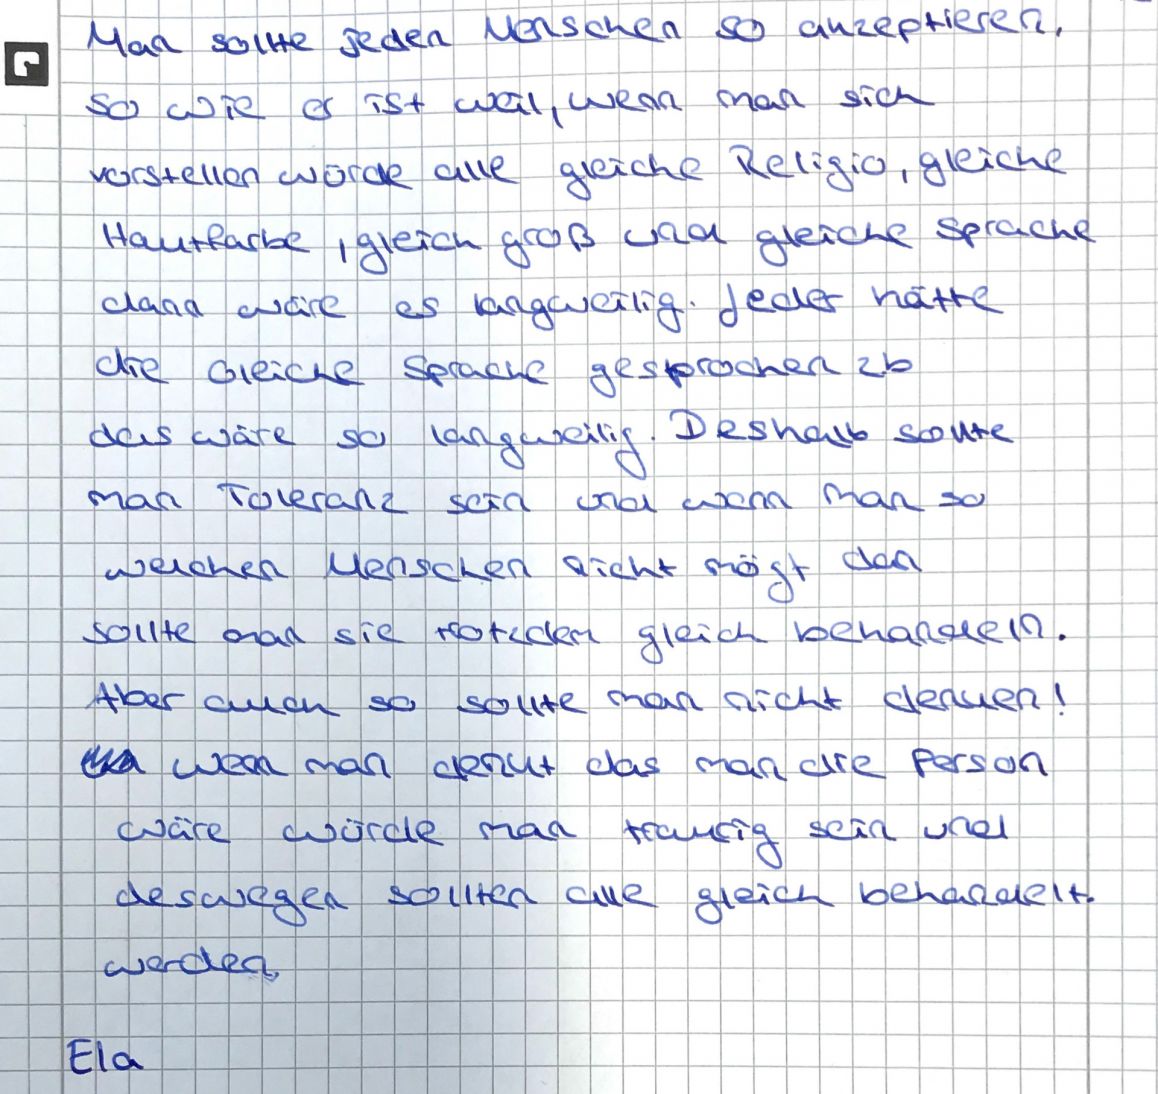 Man sollte jeden Menschen so akzeptieren,
so wie es ist weil, wenn man sich
vorstellen würde alle gleiche Religio, gleiche
Hautfarbe, gleich groß und gleiche Sprache
dann wäre es langweilig. Jeder hätte
die Gleiche Sprache gesprochen zb
das wäre so langweilig. Deshalb sollte
man Toleranz sein und wenn man so
welchen Menschen nicht mögt dan
sollte man sie trotzdem gleich behandeln.
Aber auch so sollte man nicht denken!
wen man denkt das man die Person
wäre würde man traurig sein und
deswegen sollten alle gleich behandelt.
werden.
Ela